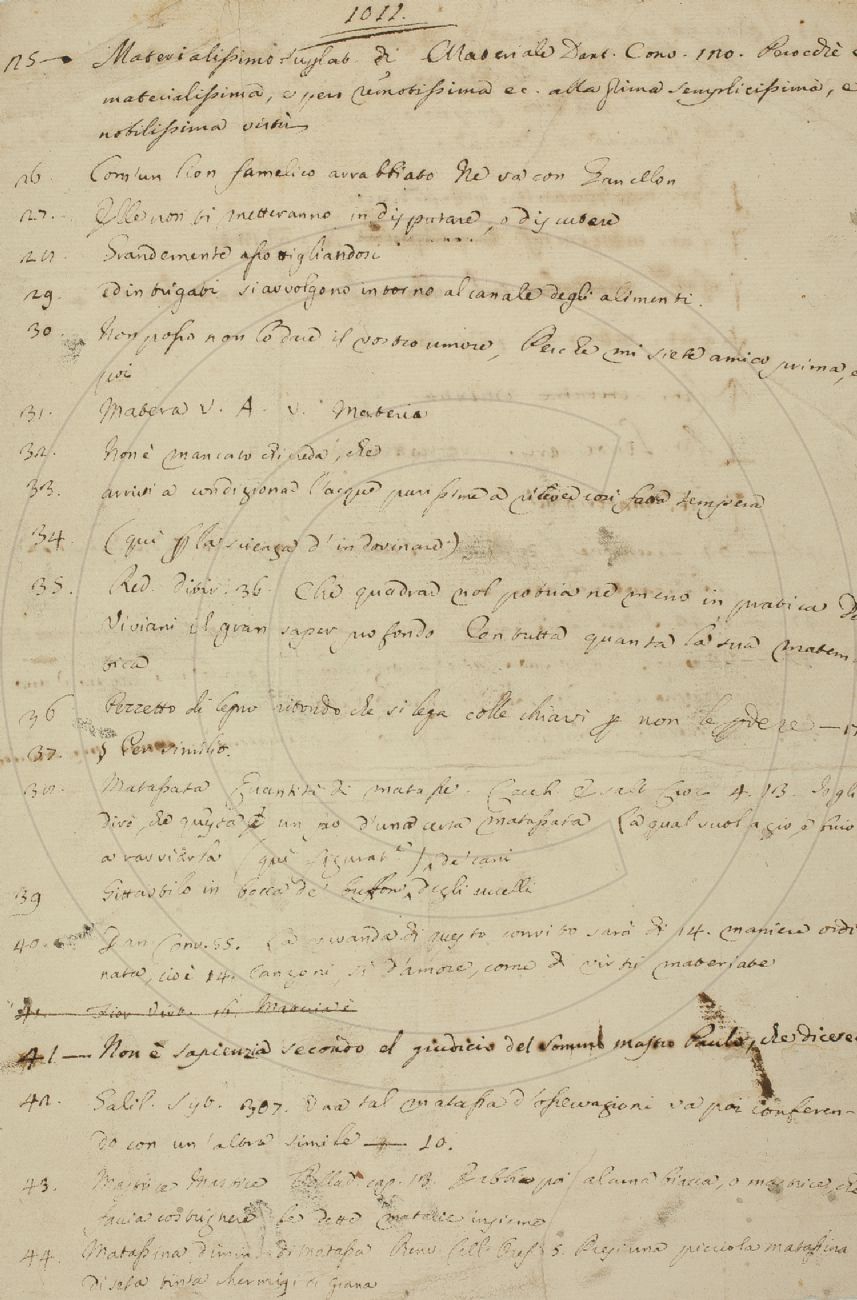 1011.
125. Materialissimo Suplat. di Materiale Dant. Conv. 120. Perocchè è
materialissima, e però remotissima ec. alla prima semplicissima, e
nobilissima virtù
26. Com'un lion famelico arrabbiato Ne va con
27. Elle non si metteranno in disputare, o discutere
28. Grandemente assottigliandosi
29. ed intrigati si avvolgono intorno al canale degli alimenti.
30. Non posso non lodare il vostro umore, Perchè mi siete amico prima, e
poi
31. Matera V. A. V. Materia
32. Non è mancato chi creda, che
33. arrivi a condizionar l'acque purissime a ricever così fatta tempera
34. (quì per la scienza d'indovinare)
35. Red. Ditir. 36. Che quadrar nol potria ne meno in pratica Del
Viviani il gran saper profondo Con tutta quanta la sua matem-
tica
36 Pezzetto di legno ritondo che si lega colle chiavi per non le perdere
37. § Per similit.
38. Matassata Quantità di matasse. Cecch. Esalt. Croc. 4. 13. Digli
Dirò, che questa è un di d'una certa matassata La qual vuol agio, e
a ravviarla (quì figurat.e)
39 Gittarbilo in bocca de' buffoni, degli uccelli
40. Dan. Conv. 55. La vivanda di questo convito sarà di 14. maniere ordi
nata, cioè 14. Canzoni, sì d'amore, come di virtù materiate
41 — Non è sapienzia secondo el giudicio del sommo mastro Paulo, che dicese
42. Galil. Sag. 307. Una tal matassa d'osservazioni va poi conferen-
do con un'altra simile — 10.
43. Mastrice Mastice Pallad. cap. 17. Ebbi poi alcuna biacca, o mastrice che
faccia costrignere le dette materie insieme
44. Matassina dimin. di Matassa Benv. Cell. Oref. 5. Presi una piccola matassina
Di seta tinta chermisi di grana